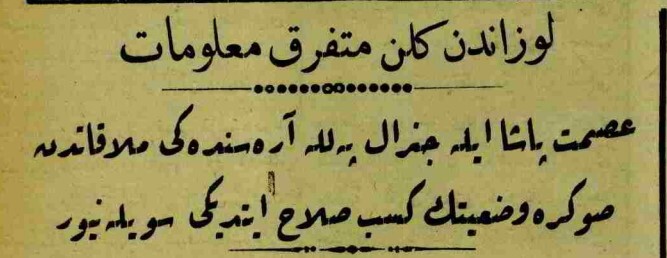 لوزاندن كلن متفرق معلومات
عصمت پاشا ايله جنرال پهلله آره سنده كى ملاقاتدن
صوكره وضعيتك كسب صلاح ايتديكى سويله نيور